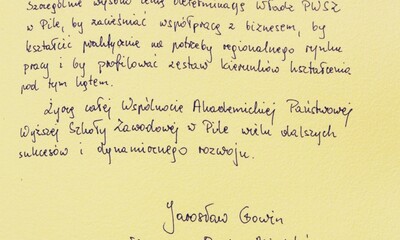 Szczególnie wysoko cenię determinację Władz PWSZ
w Pile, by zacieśniać współpracę z biznesem, by
kształcić praktycznie na potrzeby regionalnego rynku
pracy i by profilować zestaw kierunków kształcenia
pod tym kątem.
Życzę całej Wspólnocie Akademickiej Państwowej
Wyższej Szkoły Zawodowej w Pile wielu dalszych
sukcesów i dynamicznego rozwoju.
Jarosław Gowin